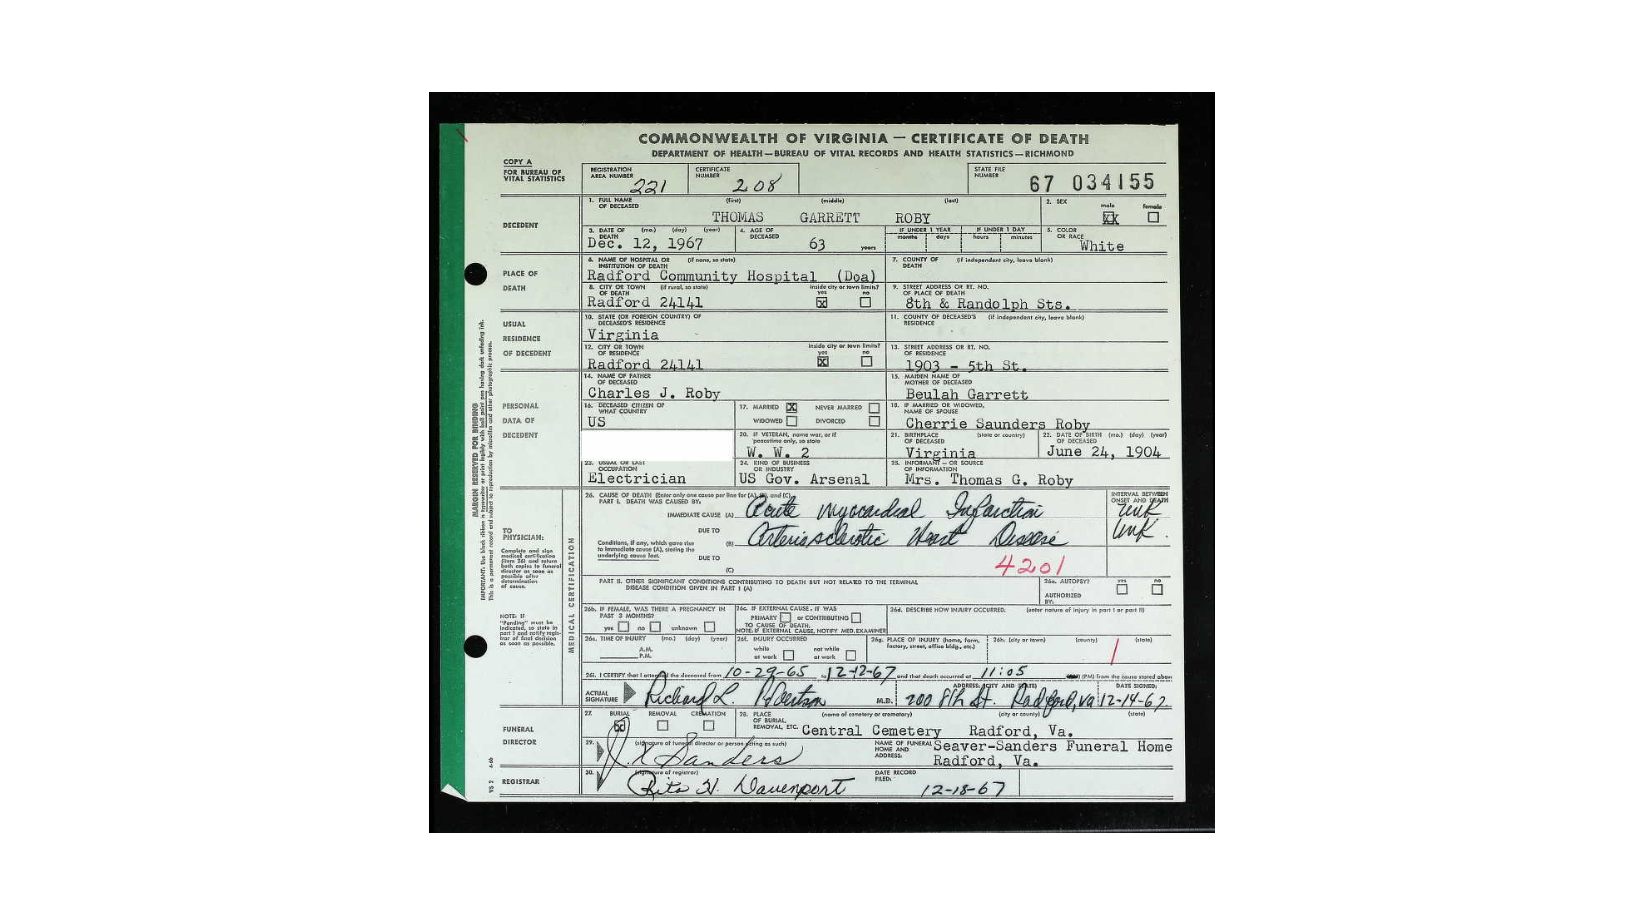 COMMONWEALTH OF VIRGINIA — CERTIFICATE OF DEATH
DEPARTMENT OF HEALTH—BUREAU OF VITAL RECORDS AND HEALTH STATISTICS—RICHMOND
COPY A
FOR BUREAU OF
VITAL STATISTICS
REGISTRATION
AREA NUMBER 221
CERTIFICATE
NUMBER 208
STATE FILE
NUMBER 67 034155
DECEDENT
1. FULL NAME OF DECEASED (first) (middle) (last)
THOMAS GARRETT ROBY
2. SEX male female
XX
3. DATE OF DEATH (mo.) (day) (year)
Dec. 12, 1967
4. AGE OF DECEASED
63 years
IF UNDER 1 YEAR IF UNDER 1 DAY
months days hours minutes
5. COLOR OR RACE
White
PLACE OF
DEATH
6. NAME OF HOSPITAL OR INSTITUTION OF DEATH (if none, so state)
Radford Community Hospital (Doa)
7. COUNTY OF DEATH (if independent city, leave blank)
8. CITY OR TOWN OF DEATH (if rural, so state) inside city or town limits? yes no
Radford 24141 X
9. STREET ADDRESS OR RT. NO. OF PLACE OF DEATH
8th & Randolph Sts.
USUAL
RESIDENCE
OF DECEDENT
10. STATE (OR FOREIGN COUNTRY) OF DECEASED'S RESIDENCE
Virginia
11. COUNTY OF DECEASED'S RESIDENCE (if independent city, leave blank)
12. CITY OR TOWN OF RESIDENCE inside city or town limits? yes no
Radford 24141 X
13. STREET ADDRESS OR RT. NO. OF RESIDENCE
1903 - 5th St.
PERSONAL
DATA OF
DECEDENT
14. NAME OF FATHER OF DECEASED
Charles J. Roby
15. MAIDEN NAME OF MOTHER OF DECEASED
Beulah Garrett
16. DECEASED CITIZEN OF WHAT COUNTRY
US
17. MARRIED X NEVER MARRIED
WIDOWED DIVORCED
18. IF MARRIED OR WIDOWED, NAME OF SPOUSE
Cherrie Saunders Roby
20. IF VETERAN, name war, or if peacetime only, so state
W. W. 2
21. BIRTHPLACE OF DECEASED (state or country)
Virginia
22. DATE OF BIRTH OF DECEASED (mo.) (day) (year)
June 24, 1904
23. USUAL OR LAST OCCUPATION
Electrician
24. KIND OF BUSINESS OR INDUSTRY
US Gov. Arsenal
25. INFORMANT—OR SOURCE OF INFORMATION
Mrs. Thomas G. Roby
MARGIN RESERVED FOR BINDING
TO
PHYSICIAN:
Complete and sign
medical certification
(item 26) and return
both copies to funeral
director as soon as
possible after
determination
of cause.
NOTE: If
"Pending" must be
indicated, so state in
part I and notify regis-
trar of final decision
as soon as possible.
MEDICAL CERTIFICATION
26. CAUSE OF DEATH (Enter only one cause per line for (A), (B), and (C).
PART I. DEATH WAS CAUSED BY:
INTERVAL BETWEEN ONSET AND DEATH
IMMEDIATE CAUSE (A) Acute Myocardial Infarction unk
DUE TO
(B) Arteriosclerotic Heart Disease unk.
Conditions, if any, which gave rise
to immediate cause (A), stating the
underlying cause last.
DUE TO
(C)
4201
PART II. OTHER SIGNIFICANT CONDITIONS CONTRIBUTING TO DEATH BUT NOT RELATED TO THE TERMINAL
DISEASE CONDITION GIVEN IN PART I (A)
26a. AUTOPSY? yes no
AUTHORIZED BY:
26b. IF FEMALE, WAS THERE A PREGNANCY IN PAST 3 MONTHS?
yes no unknown
26c. IF EXTERNAL CAUSE, IT WAS
PRIMARY or CONTRIBUTING
TO CAUSE OF DEATH.
NOTE: IF EXTERNAL CAUSE, NOTIFY MED. EXAMINER
26d. DESCRIBE HOW INJURY OCCURRED. (enter nature of injury in part I or part II)
26e. TIME OF INJURY (mo.) (day) (year)
A.M.
P.M.
26f. INJURY OCCURRED
while at work not while at work
26g. PLACE OF INJURY (home, farm, factory, street, office bldg., etc.)
26h. (city or town) (county) (state)
26i. I CERTIFY that I attended the deceased from 10-29-65 to 12-12-67 and that death occurred at 11:05 (PM) from the cause stated above
ACTUAL
SIGNATURE Richard L. Robertson M.D.
ADDRESS: (CITY AND STATE)
200 8th St. Radford, Va
DATE SIGNED:
12-14-67
FUNERAL
DIRECTOR
27. BURIAL REMOVAL CREMATION
28. PLACE OF BURIAL, REMOVAL, ETC. (name of cemetery or crematory) (city or county) (state)
Central Cemetery Radford, Va.
29. (signature of funeral director or person acting as such)
Sanders
NAME OF FUNERAL HOME AND ADDRESS:
Seaver-Sanders Funeral Home
Radford, Va.
REGISTRAR
30. (signature of registrar)
Rita H. Davenport
DATE RECORD FILED:
12-18-67
VS 2